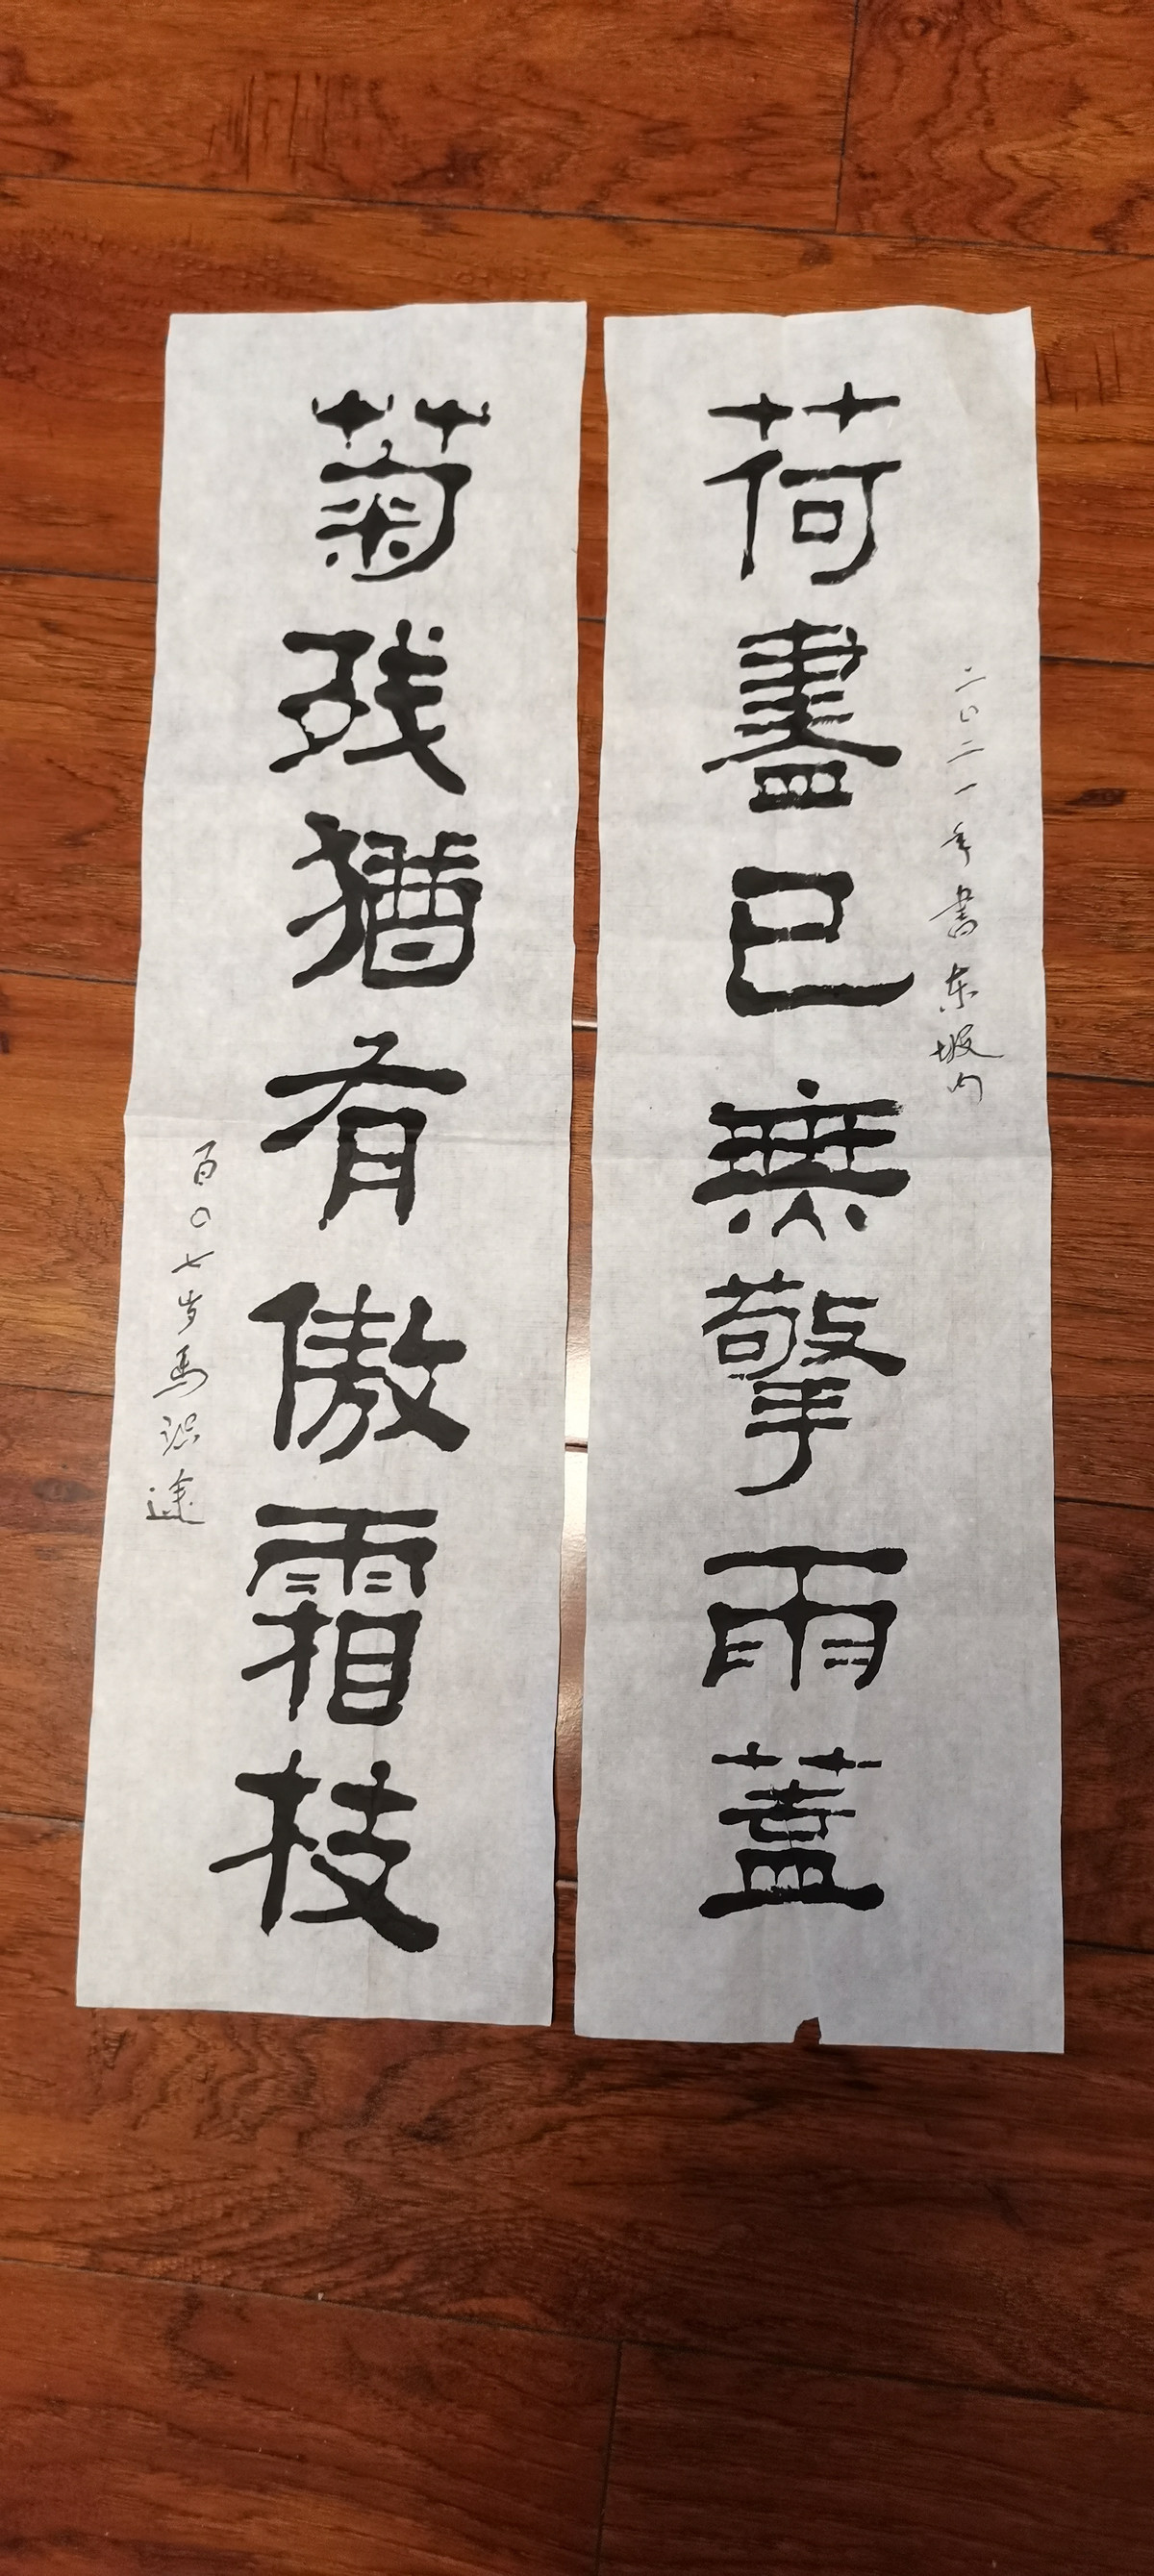 荷盡已無擎雨蓋
二〇二一年書东坡句
菊残猶有傲霜枝
百〇七岁馬識途